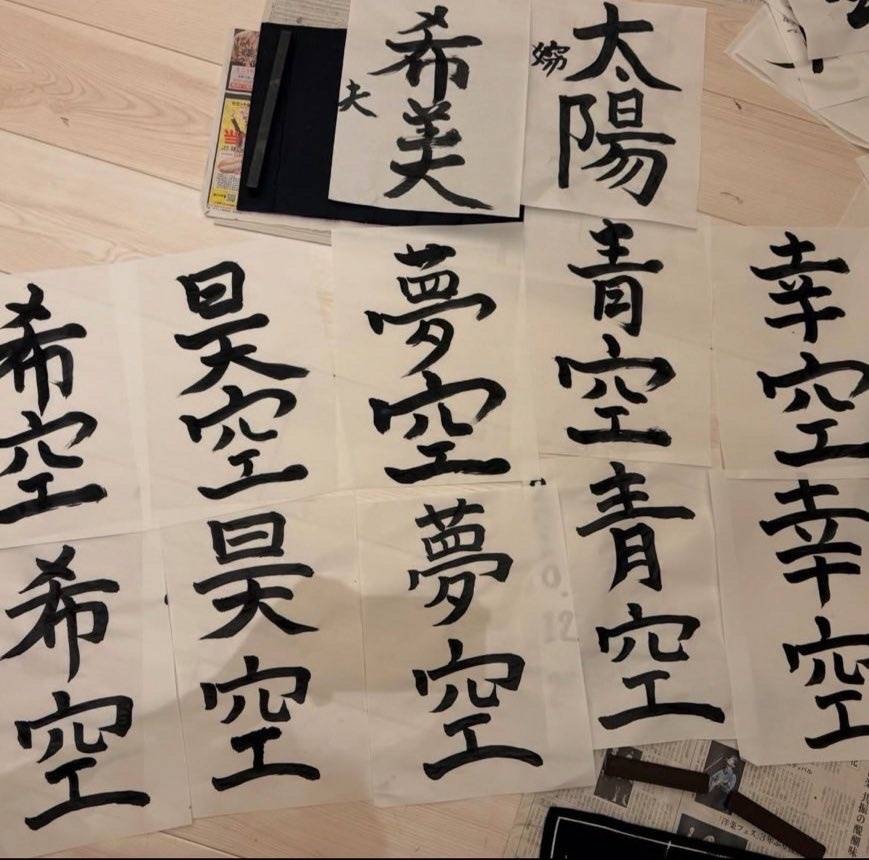 希美
夫
太陽
希空
昊空
夢空
青空
幸空
希空
昊空
夢空
青空
幸空
共振の醍醐味